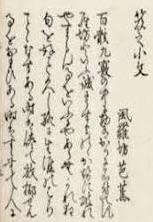 笈之小文
風羅坊芭蕉
百骸九竅の中に物有かりに名付て風
羅坊といふ誠にうすものゝかせに破れ
やすからん事をいふにやあらむかれ狂
句を好こと久し終に生涯のはかりこ
とゝなすある時は倦て放擲せん
事をおもひある時はすゝむて人に